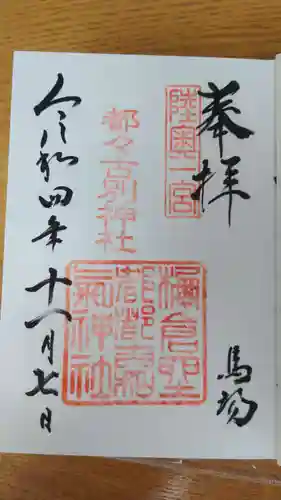 奉拝
陸奥一宮
馬場
都々古別神社
令和四年十一月七日